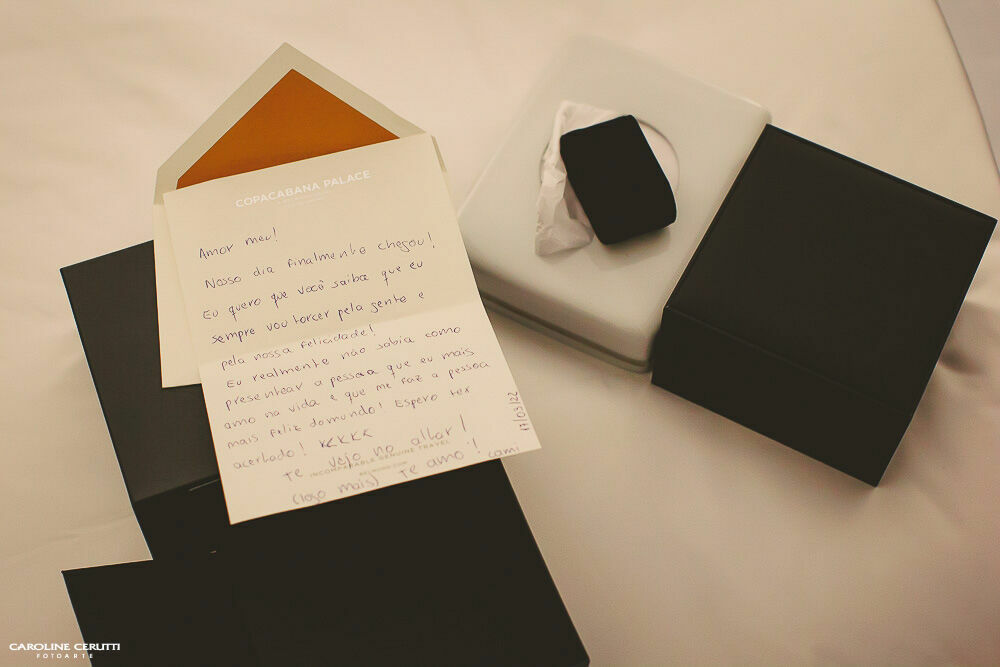 COPACABANA PALACE
Amor meu!
Nosso dia finalmente chegou!
Eu quero que você saiba que eu
sempre vou torcer pela gente e
pela nossa felicidade!
Eu realmente não sabia como
presentear a pessoa que eu mais
amo na vida e que me faz a pessoa
mais feliz do mundo! Espero ter
acertado! KKKKK
Te vejo no altar!
INCOMPARABLE GENUINE TRAVEL
BELMOND.COM
(logo mais) Te amo! Cami
17/03/22
CAROLINE CERUTTI
FOTOARTE